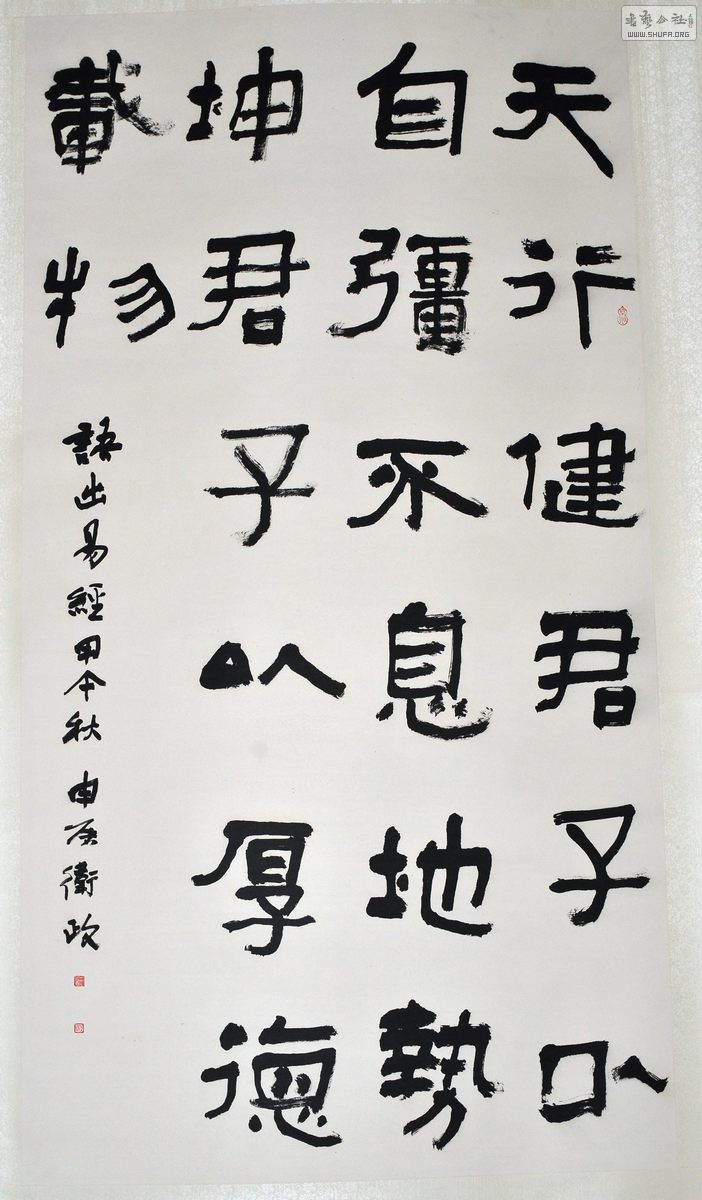 天行健君子以
自彊不息地勢
坤君子以厚德
載物
語出易經甲午秋 衛政
書藝公社
WWW.SHUFA.ORG